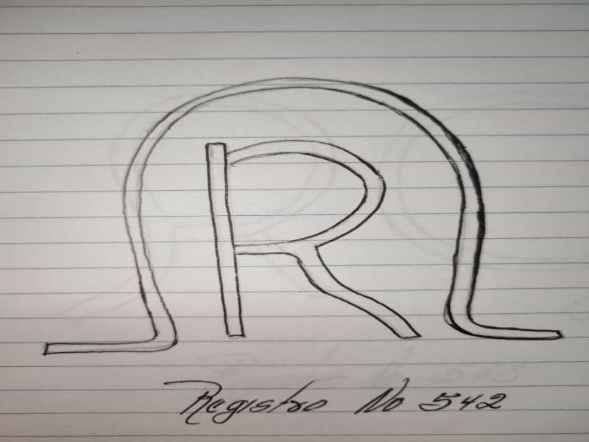 R
Registro No 542